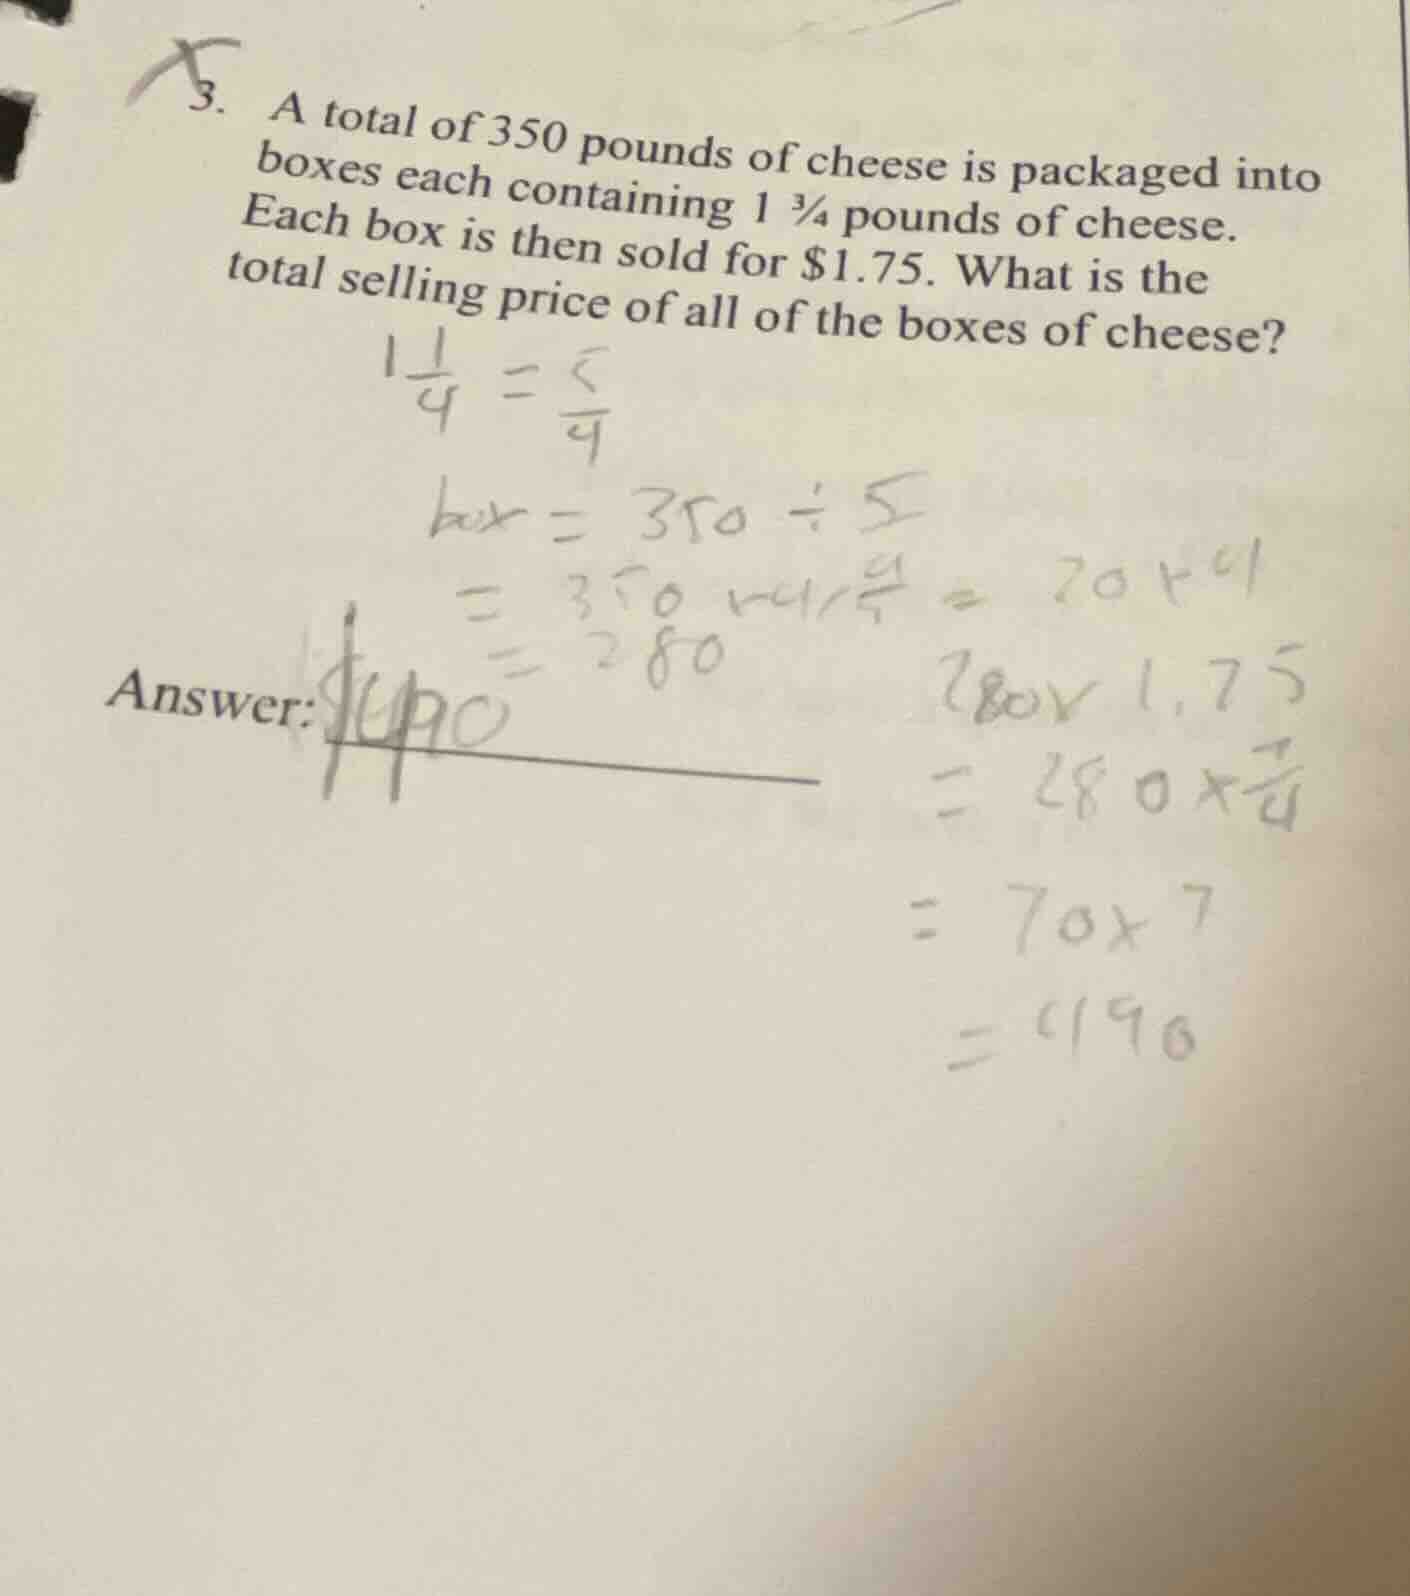 3. A total of 350 pounds of cheese is packaged into
boxes each containing 1 ¾ pounds of cheese.
Each box is then sold for $1.75. What is the
total selling price of all of the boxes of cheese?
1 1/4 = 5/4
box = 350 ÷ 5
= 350 × 4/5 = 70 × 4
= 280
Answer: $490
280 × 1.75
= 280 × 7/4
= 70 × 7
= 490